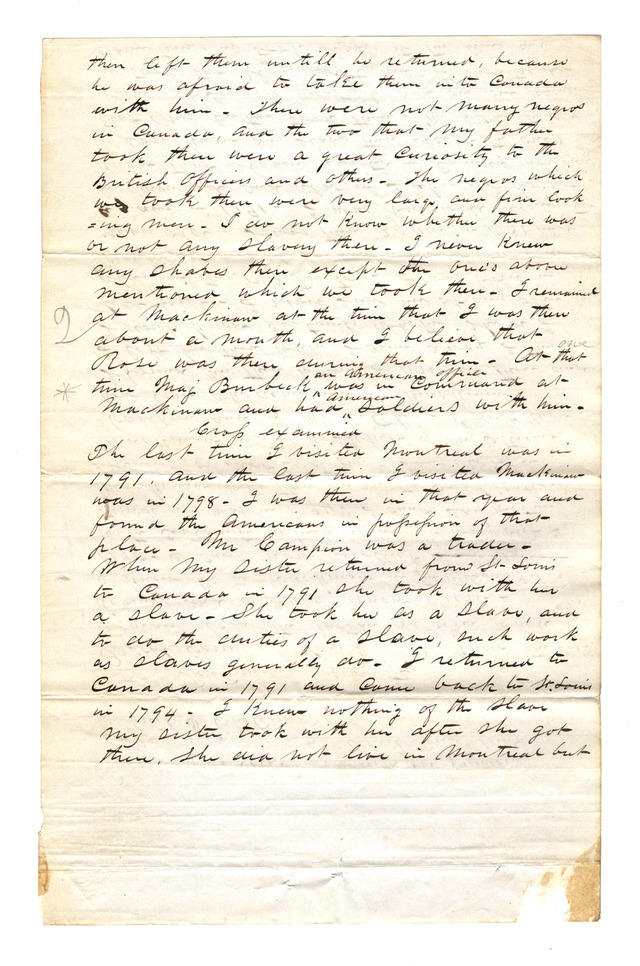 then left them untill he returned, because
he was afraid to take them into Canada
with him - There were not many negros
in Canada, and the two that my father
took there were a great curiosity to the
British Officers and others - The negros which
we took there were very large and fine look
=ing men - I do not know whether there was
or not any slavery there - I never knew
any slaves there except the one's above
mentioned which we took there - I remained
at Mackinaw at the time that I was there
2
about a month, and I believe that
one
Rose was there during that time - At that
an American officer
* time Maj Burbeck was in Command at
American
Mackinaw and had soldiers with him -
Cross examined
The last time I visited Montreal was in
1791, and the last time I visited Mackinaw
was in 1798 - I was there in that year and
found the Americans in possession of that
place - Mr Campion was a trader -
When my sister returned from St Louis
to Canada in 1791 she took with her
a slave - She took her as a slave, and
to do the duties of a slave, such work
as slaves generally do - I returned to
Canada in 1791 and Came back to St. Louis
in 1794 - I knew nothing of the slave
my sister took with her after she got
there. She did not live in Montreal but